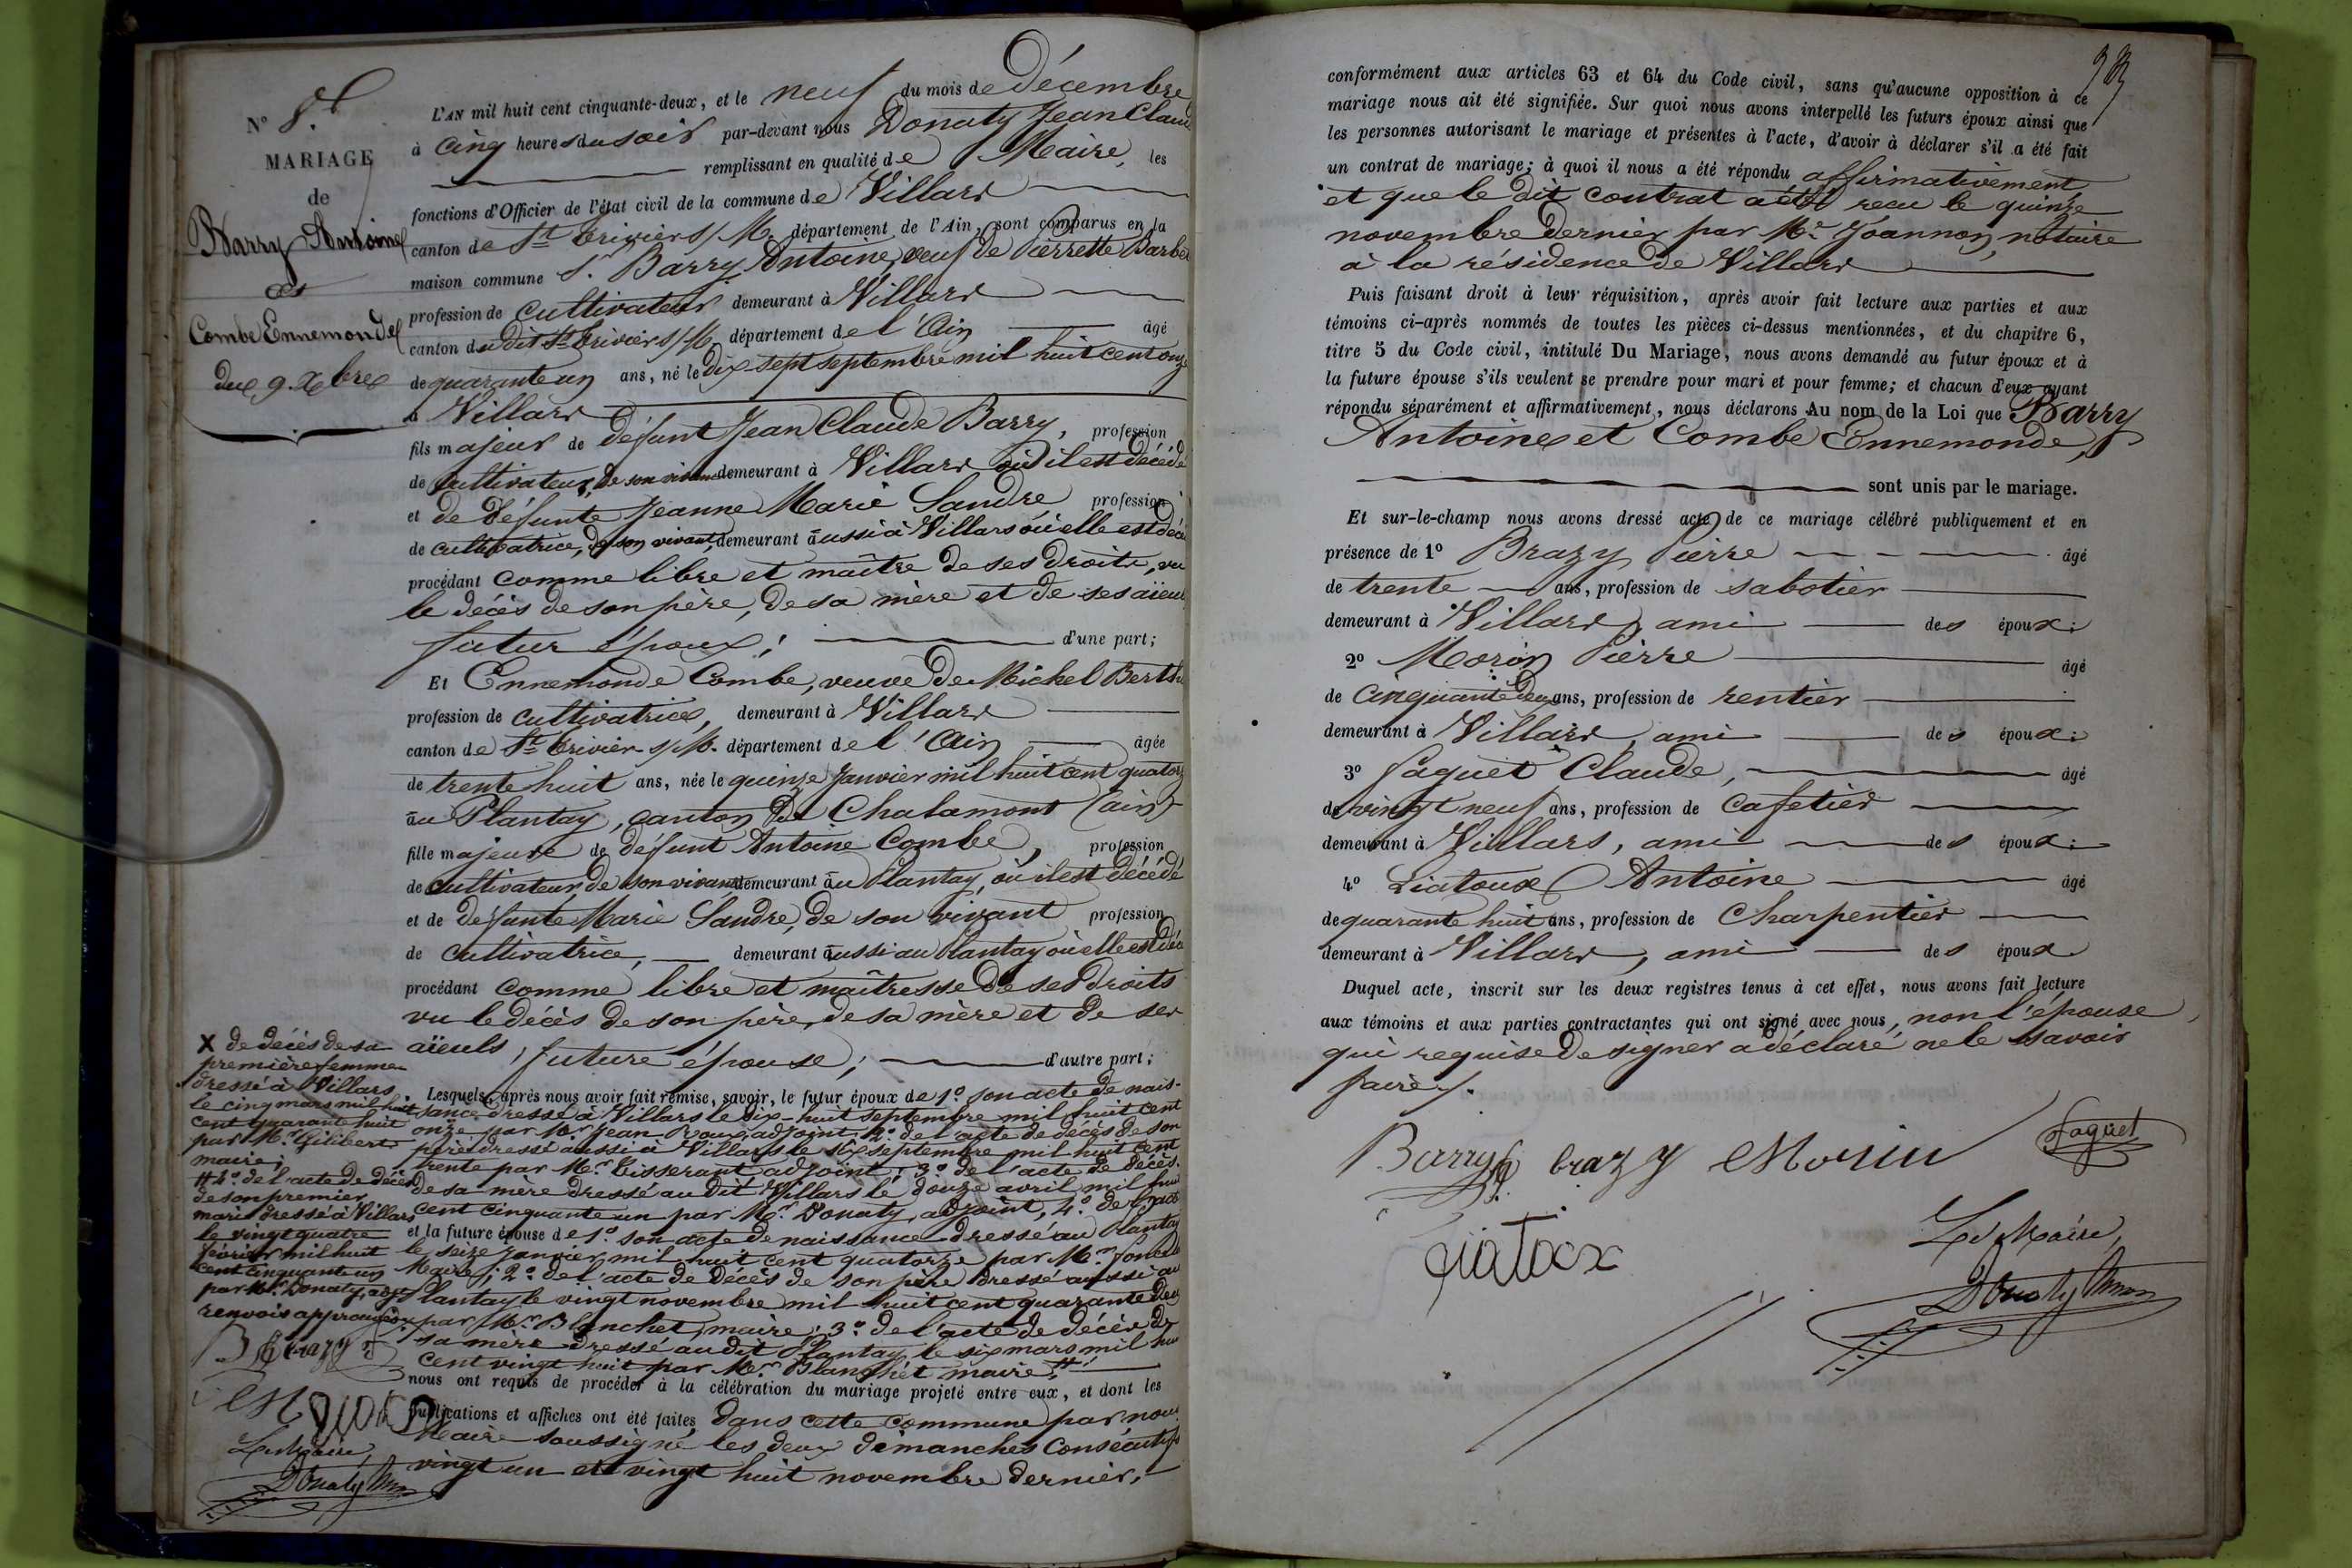 N° 8.
MARIAGE
de
Barry Antoine
et
Combe Ennemonde
du 9. Xbre
L'AN mil huit cent cinquante-deux, et le neuf du mois de Décembre
à cinq heures du soir par-devant nous Donaty Jean Claude
remplissant en qualité de Maire, les
fonctions d'Officier de l'état civil de la commune de Villars
canton de St Trivier s/ M. département de l'Ain, sont comparus en la
maison commune Sr. Barry Antoine, veuf de Pierrette Barbet
profession de cultivateur demeurant à Villars
canton du dit St Trivier s/ M. département de l'Ain âgé
de quarante un ans, né le dix sept septembre mil huit cent onze
à Villars
fils majeur de défunt Jean Claude Barry, profession
de cultivateur, de son vivant demeurant à Villars où il est décédé
et de défunte Jeanne Marie Sandre profession
de cultivatrice, de son vivant, demeurant aussi à Villars où elle est déc
procédant comme libre et maître de ses droits, vu
le décès de son père, de sa mère et de ses aïeuls
futur époux; d'une part;
Et Ennemonde Combe, veuve de Michel Berth
profession de cultivatrice, demeurant à Villars
canton de St Trivier s/ M. département de l'Ain âgée
de trente huit ans, née le quinze Janvier mil huit cent quatorz
au Plantay, canton de Chalamont (ain)
fille majeure de défunt Antoine Combe, profession
de cultivateur de son vivant demeurant au Plantay, où il est décédé
et de défunte Marie Sandre, de son vivant profession
de cultivatrice, demeurant aussi au Plantay où elle est déc
procédant comme libre et maîtresse de ses droits
vu le décès de son père, de sa mère et de ses
aïeuls, future épouse; d'autre part;
Lesquels, après nous avoir fait remise, savoir, le futur époux de 1° son acte de nais-
sance dressé à Villars le dix-huit septembre mil huit cent
onze par Mr Jean Roux, adjoint, 2° de l'acte de décès de son
père dressé aussi à Villars le six septembre mil huit cent
trente par Mr. Tisserant adjoint; 3° de l'acte de décès
de sa mère dressé au dit Villars le douze avril mil huit
cent cinquante un par Mr. Donaty, adjoint, 4° de l'acte
et la future épouse de 1° son acte de naissance dressé au Plantay
le seize janvier mil huit cent quatorze par Mr.
Maire; 2° de l'acte de décès de son père dressé aussi au
Plantay le vingt novembre mil huit cent quarante deux
par Mr. Blanchet, maire; 3° de l'acte de décès de
sa mère dressé au dit Plantay le six mars mil huit
cent vingt huit par Mr. Blanchet maire, #
nous ont requis de procéder à la célébration du mariage projeté entre eux, et dont les
publications et affiches ont été faites, dans cette commune par nous
Maire soussigné les deux dimanches consécutifs
vingt un et vingt huit novembre dernier,
X de décès de sa
première femme
dressé à Villars
le cinq mars mil huit
cent quarante huit
par Mr. Gilibert
maire;
# 4° de l'acte de décès
de son premier
mari dressé à Villars
le vingt quatre
février mil huit
cent cinquante un
par Mr. Donaty, adjt
renvois approuvés
B brazy
Morin
Le Maire,
Donaty
conformément aux articles 63 et 64 du Code civil, sans qu'aucune opposition à ce
mariage nous ait été signifiée. Sur quoi nous avons interpellé les futurs époux ainsi que
les personnes autorisant le mariage et présentes à l'acte, d'avoir à déclarer s'il a été fait
un contrat de mariage; à quoi il nous a été répondu affirmativement,
et que le dit contrat a été reçu le quinze
novembre dernier par Mr. Joannon, notaire
à la résidence de Villars
Puis faisant droit à leur réquisition, après avoir fait lecture aux parties et aux
témoins ci-après nommés de toutes les pièces ci-dessus mentionnées, et du chapitre 6,
titre 5 du Code civil, intitulé Du Mariage, nous avons demandé au futur époux et à
la future épouse s'ils veulent se prendre pour mari et pour femme; et chacun d'eux ayant
répondu séparément et affirmativement, nous déclarons Au nom de la Loi que Barry
Antoine et Combe Ennemonde,
sont unis par le mariage.
Et sur-le-champ nous avons dressé acte de ce mariage célébré publiquement et en
présence de 1° Brazy Pierre âgé
de trente ans, profession de sabotier
demeurant à Villars, ami des époux;
2° Morin Pierre âgé
de cinquante deux ans, profession de rentier
demeurant à Villars, ami des époux;
3° Faguet Claude, âgé
de vingt neuf ans, profession de cafetier
demeurant à Villars, ami des époux;
4° Liatoux Antoine âgé
de quarante huit ans, profession de Charpentier
demeurant à Villars, ami des époux
Duquel acte, inscrit sur les deux registres tenus à cet effet, nous avons fait lecture
aux témoins et aux parties contractantes qui ont signé avec nous, non l'épouse
qui requise de signer a déclaré ne le savoir
faire.
Barry brazy Morin Faguet
Liatoux
Le Maire,
Donaty